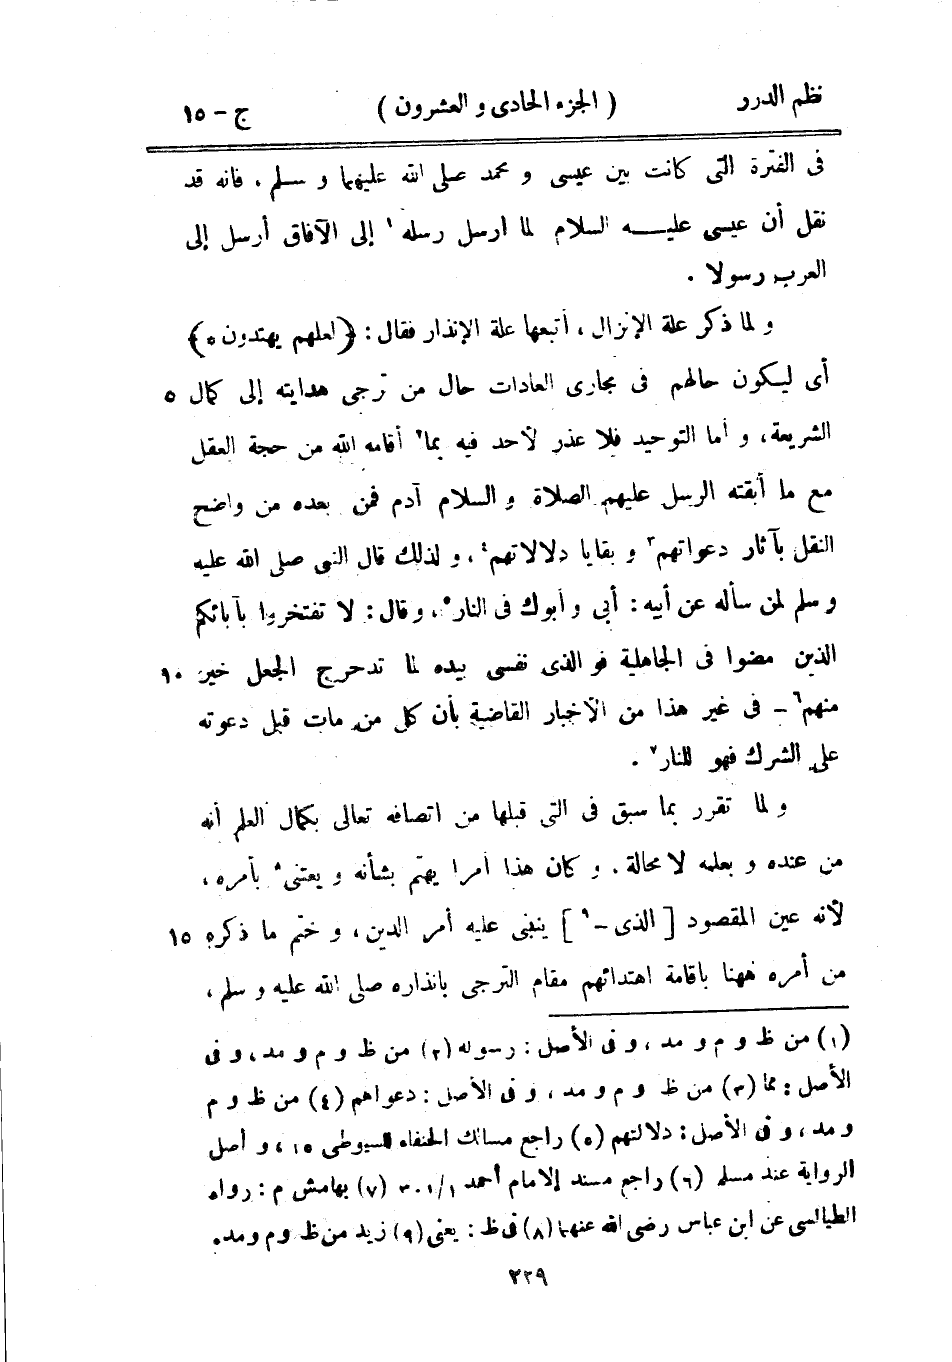 نظم الدرر ( الجزء الحادى و العشرون ) ج - ١٥
فى الفترة التى كانت بين عيسى و محمد صلى الله عليهما و سلم ، فانه قد
نقل أن عيسى عليـــه السلام لما ارسل رسله ١ إلى الآفاق أرسل إلى
العرب رسولا .
و لما ذكر علة الإنزال ، أتبعها علة الإنذار فقال : ﴿ لعلهم يهتدون ٥ ﴾
أى ليكون حالهم فى مجارى العادات حال من ترجى هدايته إلى كمال ٥
الشريعة ، و أما التوحيد فلا عذر لأحد فيه بما ٢ أقامه الله من حجة العقل
مع ما أبقته الرسل عليهم الصلاة و السلام آدم فمن بعده من واضح
النقل بآثار دعواتهم ٣ و بقايا دلالاتهم ٤ ، و لذلك قال النبى صلى الله عليه
و سلم لمن سأله عن أبيه : أبى و أبوك فى النار ٥ ، و قال : لا تفتخروا بآبائكم
الذين مضوا فى الجاهلية فو الذى نفسى بيده لما تدحرج الجعل خير ١٠
منهم ٦ - فى غير هذا من الأخبار القاضية بأن كل من مات قبل دعوته
على الشرك فهو للنار ٧ .
و لما تقرر بما سبق فى التى قبلها من اتصافه تعالى بكمال العلم أنه
من عنده و بعلمه لا محالة . و كان هذا أمرا يهتم بشأنه و يعتنى ٨ بأمره ،
لأنه عين المقصود [ الذى - ٩ ] ينبنى عليه أمر الدين ، و ختم ما ذكره ١٥
من أمره ههنا باقامة اهتدائهم مقام الترجى بانذاره صلى الله عليه و سلم ،
(١) من ظ و م و مد ، و فى الأصل : رسوله (٢) من ظ و م و مد ، و فى
الأصل : مما (٣) من ظ و م و مد ، و فى الأصل : دعواهم (٤) من ظ و م
و مد ، و فى الأصل : دلالتهم (٥) راجع مسالك الحنفاء للسيوطى ١٥ ، و أصل
الرواية عند مسلم (٦) راجع مسند الإمام أحمد ٣٠١/١ (٧) بهامش م : رواه
الطيالسى عن ابن عباس رضى الله عنهما (٨) فى ظ : يعنى (٩) زيد من ظ و م و مد .
٢٢٩